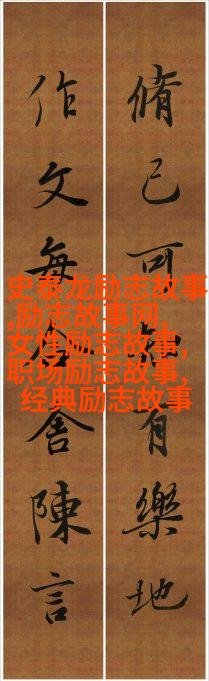 脩己可有樂地
作文每舍陳言
史泰龙励志故事
,励志故事网,
女性励志故事,
职场励志故事,
经典励志故事